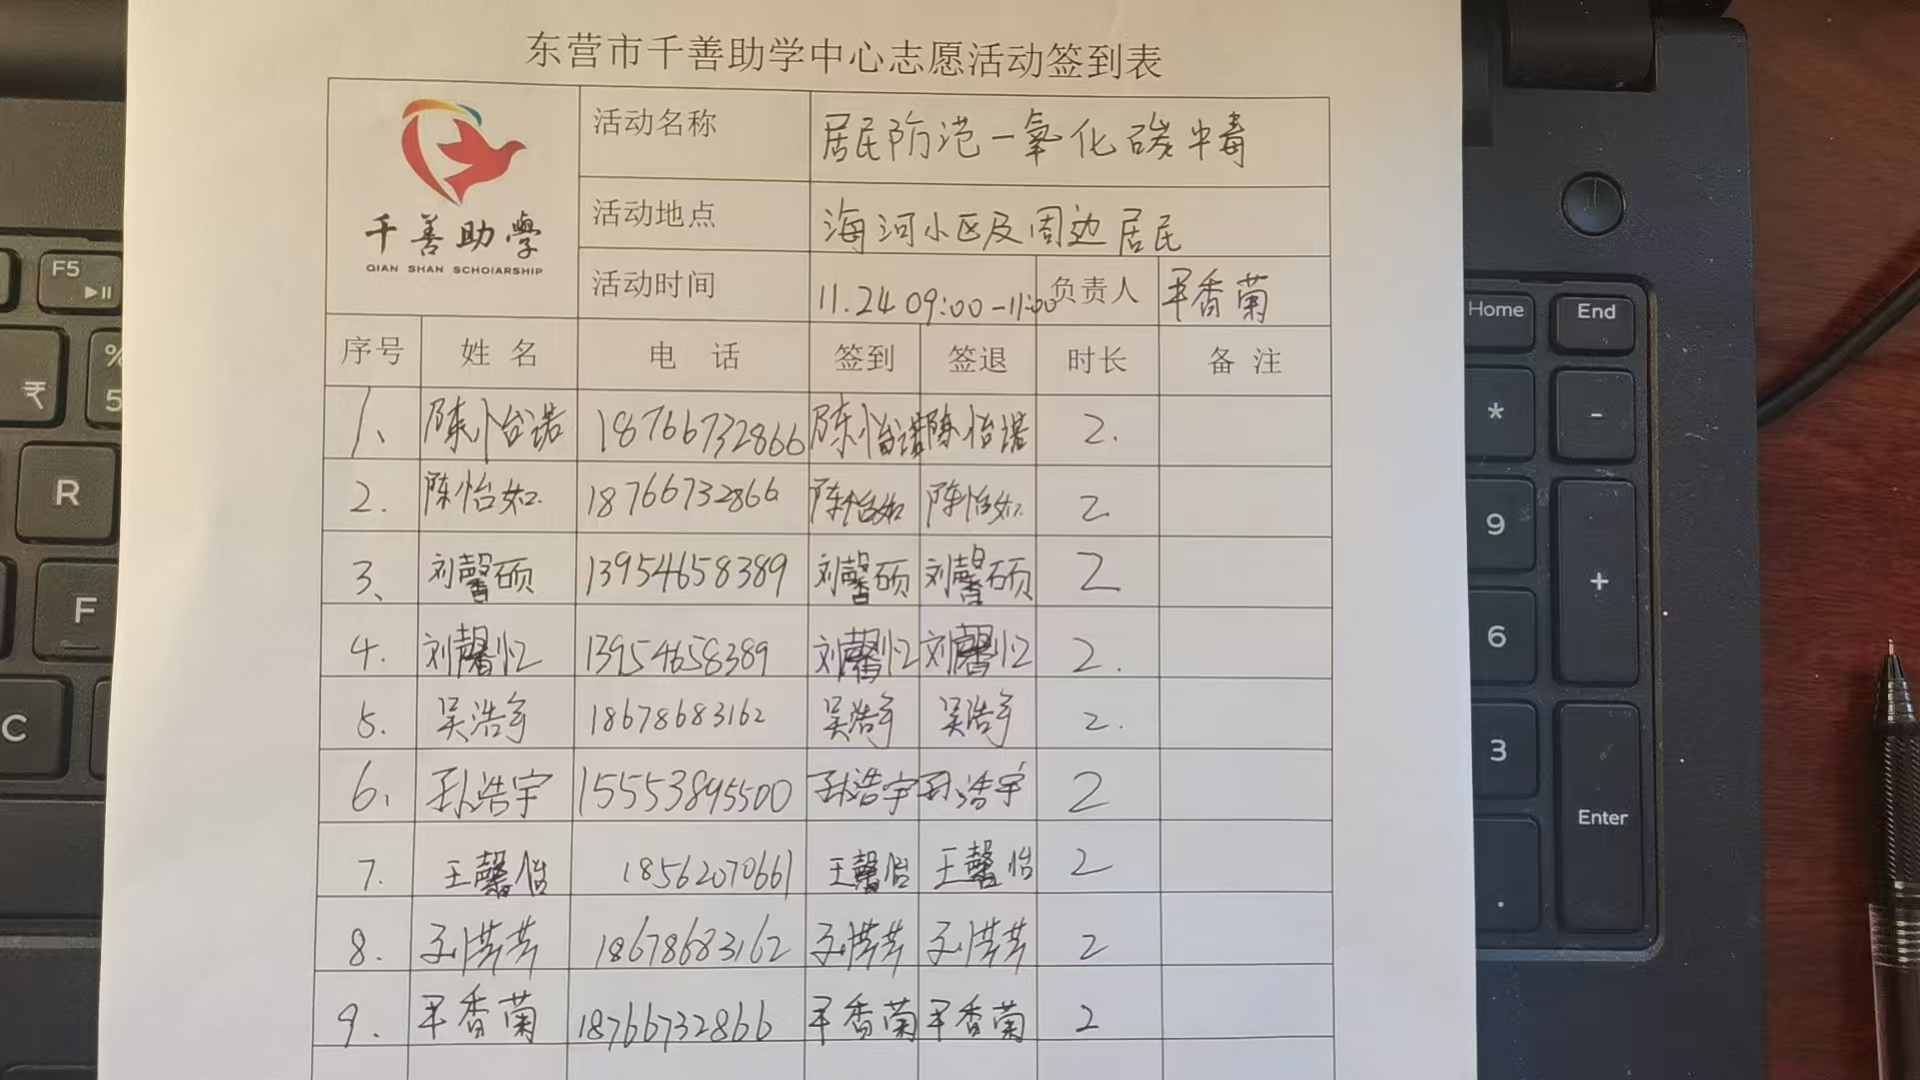 东营市千善助学中心志愿活动签到表
千善助學
QIAN SHAN SCHOlARSHIP
活动名称 居民防范一氧化碳中毒
活动地点 海河小区及周边居民
活动时间 11.24 09:00-11:00 负责人 香菊
序号 姓名 电话 签到 签退 时长 备注
1、 陈怡诺 18766732866 陈怡诺 陈怡诺 2.
2. 陈怡如 18766732866 陈怡如 陈怡如 2
3、 刘馨硕 13954658389 刘馨硕 刘馨硕 2
4. 刘馨忆 13954658389 刘馨忆 刘馨忆 2.
5. 吴浩宇 18678683162 吴浩宇 吴浩宇 2.
6. 孙浩宇 15553895500 孙浩宇 孙浩宇 2
7. 王馨怡 18562070661 王馨怡 王馨怡 2
8. 18678683162 2
9. 香菊 18766732866 香菊 香菊 2
F5
%
5
₹
R
F
C
Home
End
*
-
9
+
6
3
Enter
.